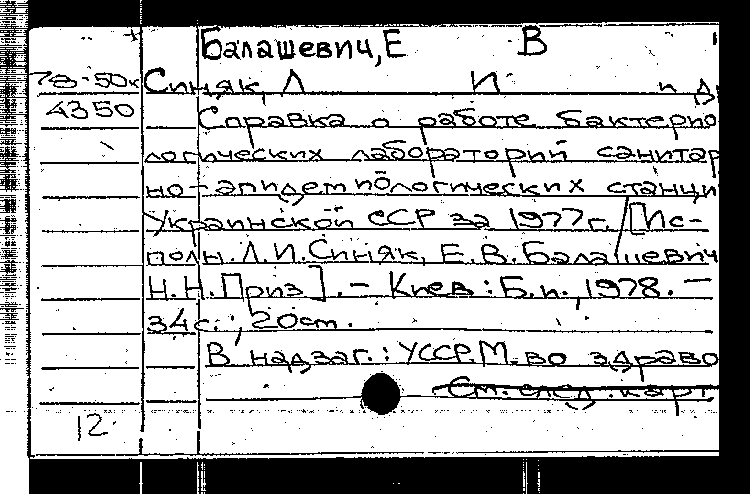 Балашевич, Е В
78-50к Синяк, Л И и др
4350 Справка о работе бактерио
логических лабораторий санитар
но-эпидемиологических станци
Украинской ССР за 1977г. /[Ис-
полн. Л.И. Синяк, Е.В. Балашевич
Н.Н. Приз]. - Киев : Б.и., 1978. -
34с. ; 20см.
В надзаг.: УССР. М-во здраво
См. след. карт
12